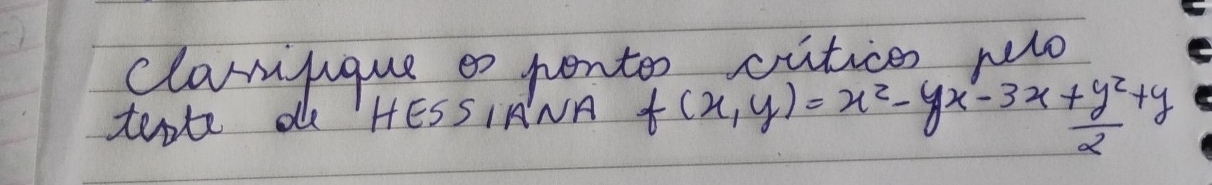 Classifique os pontos críticos pelo
teste de HESSIANA f(x,y) = x² - yx - 3x + y²/2 + y